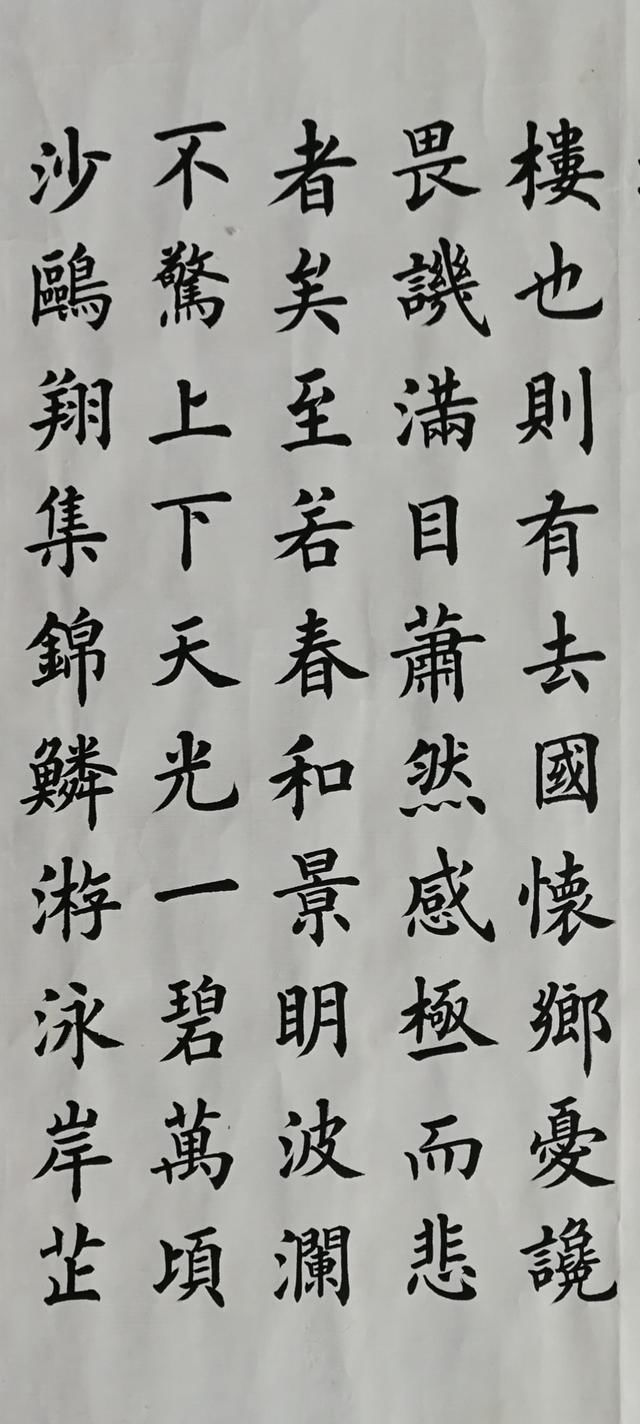 樓也則有去國懷鄉憂讒
畏譏滿目蕭然感極而悲
者矣至若春和景明波瀾
不驚上下天光一碧萬頃
沙鷗翔集錦鱗游泳岸芷